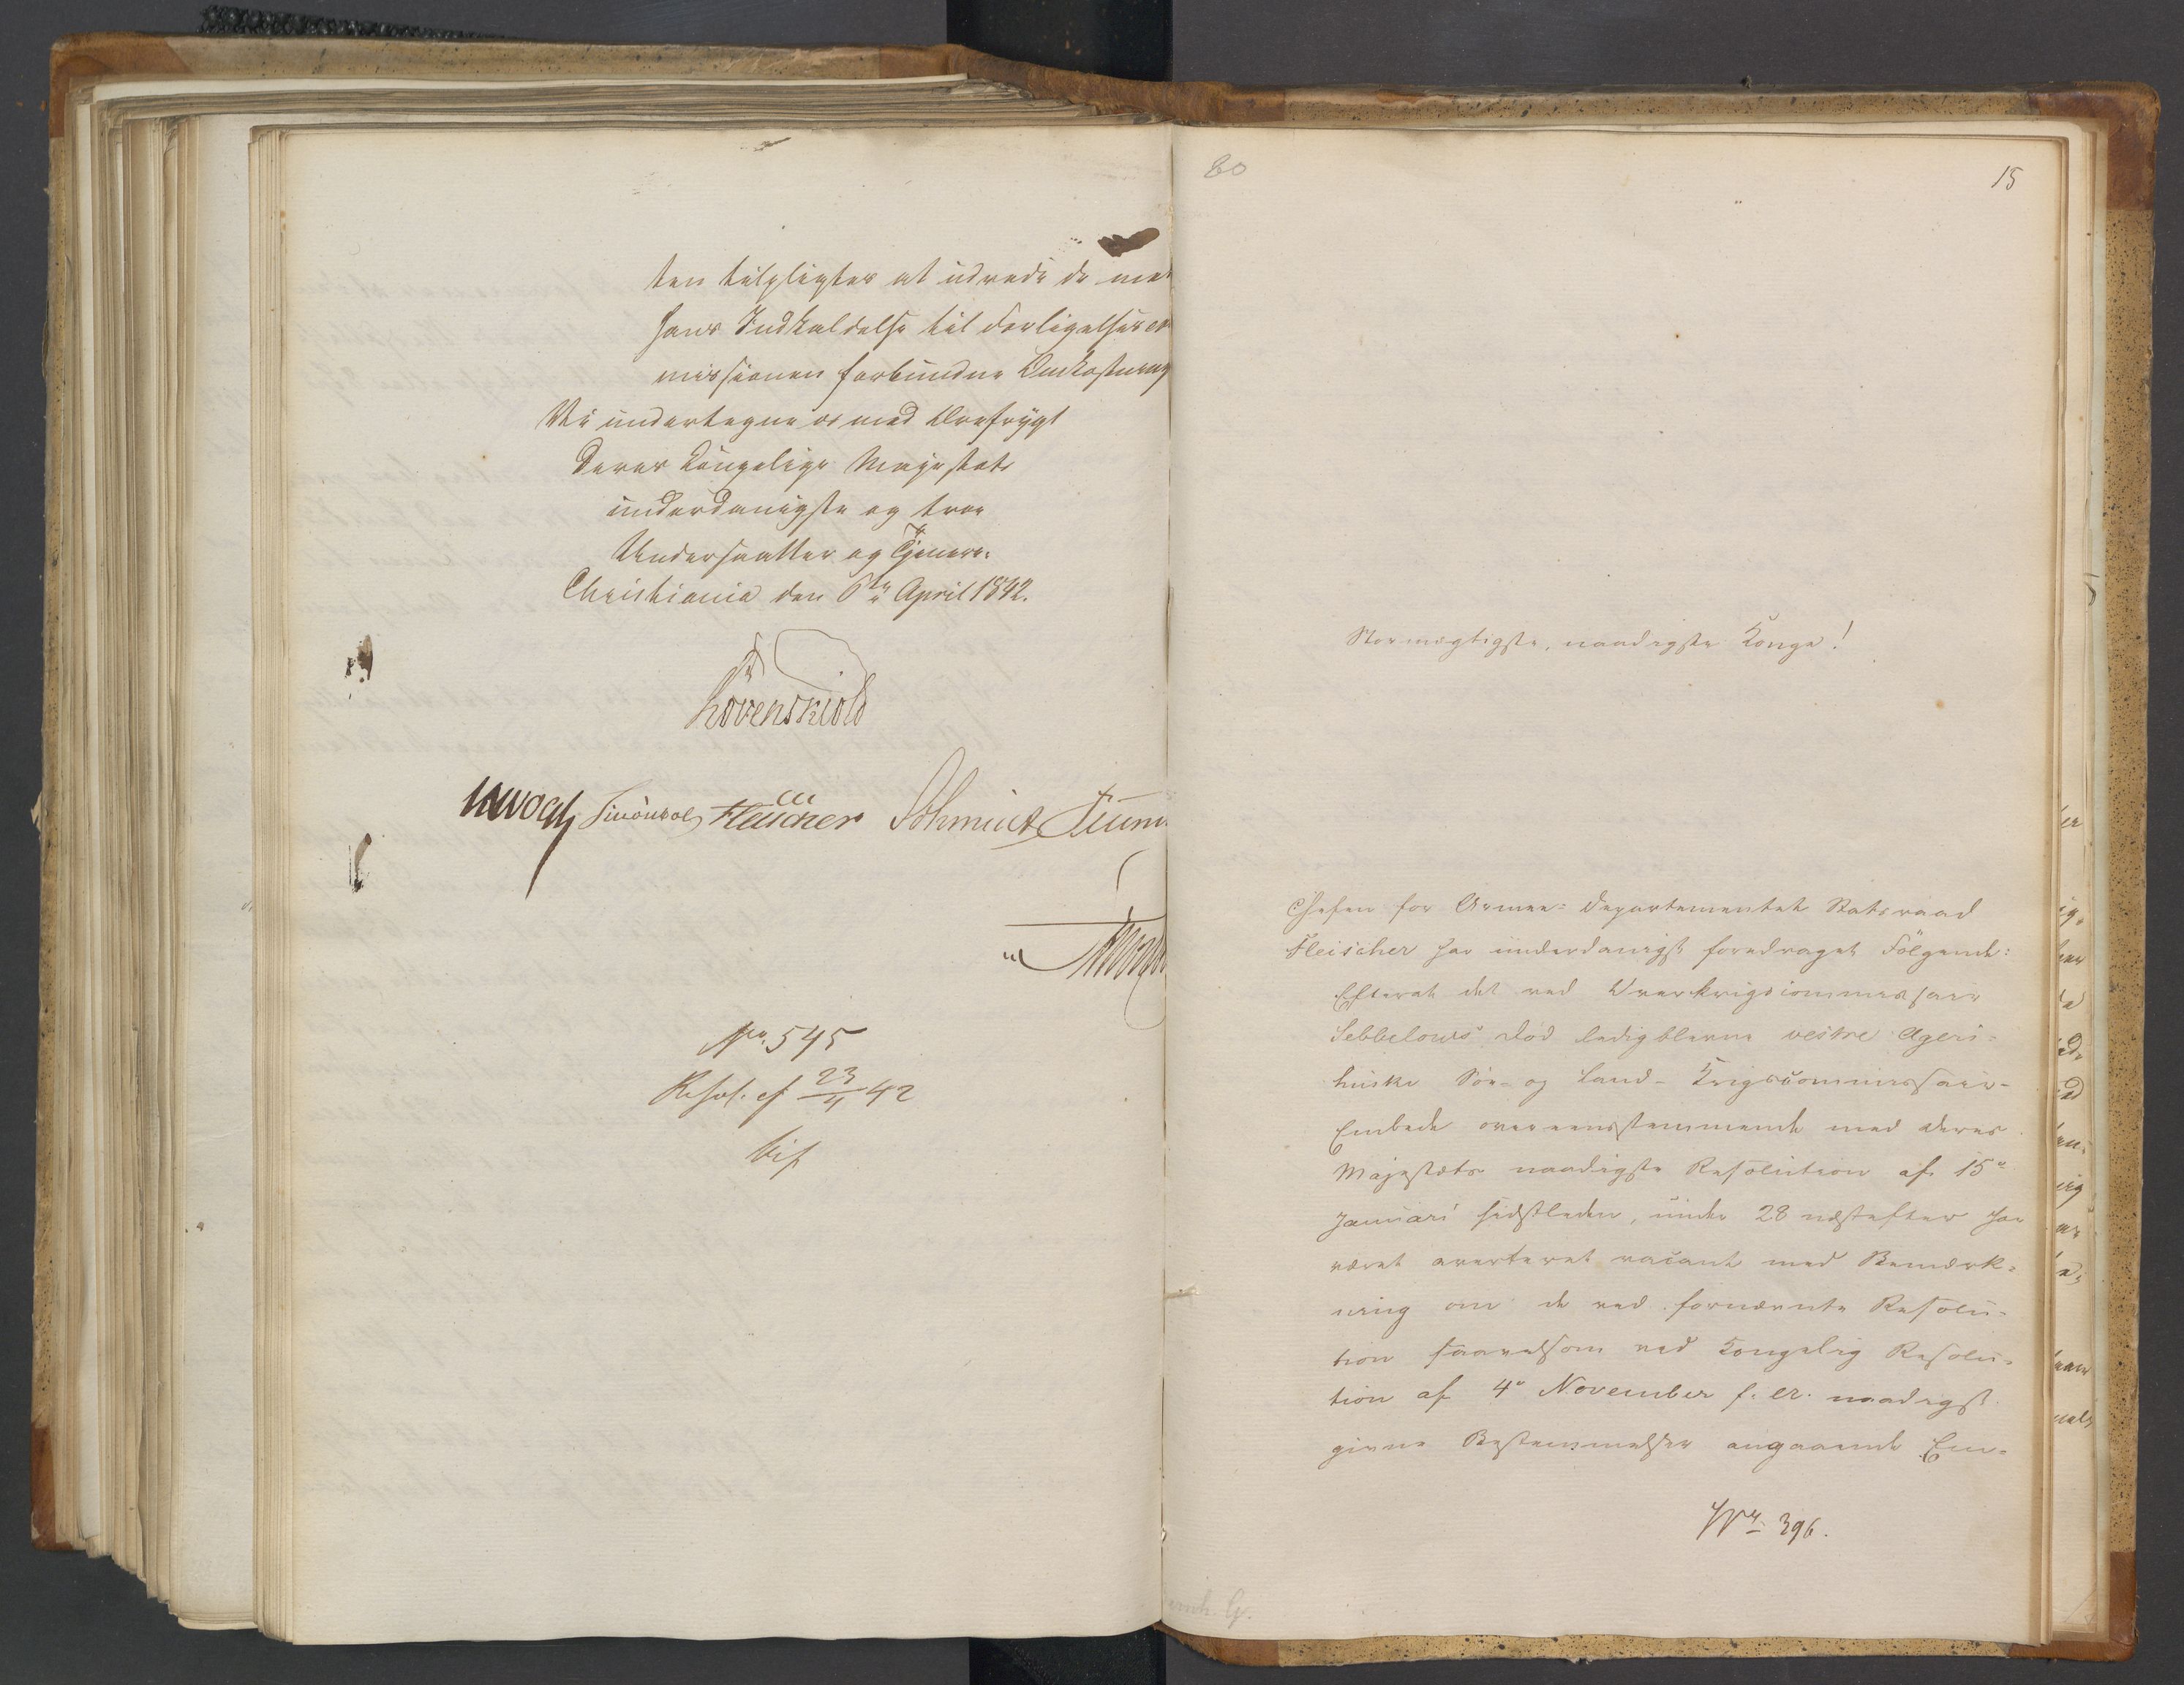 ten tilpligtes at udrede de med
hans Indkaldelse til Forligelsescom
missionen forbundne Omkostning
Vi undertegne os med Ærefrygt
Deres Kongelige Majestæts
underdanigste og troe
Undersaatter og Tjenere.
Christiania den 6te April 1842.
Løvenskiold
JHVogt Sibbern Fleischer Schmidt
No. 545
Resol. af 23/4 42
80
15
Stormægtigste, naadigste Konge!
Chefen for Armee-Departementet Statsraad
Fleischer har underdanigst foredraget Følgende:
Efterat det ved Overkrigscommissair
Sebbelows Død ledigblevne vestre Agers-
huuske Søe- og Land-Krigscommissair-
Embede overeensstemmende med Deres
Majestæts naadigste Resolution af 15de
Januari sidstleden, under 28 næstefter har
været averteret vacant med Bemærk-
ning om de ved fornævnte Resolu-
tion saavelsom ved Kongelig Resolu-
tion af 4de November f. A. naadigst
givne Bestemmelser angaaende Em-
No 396.